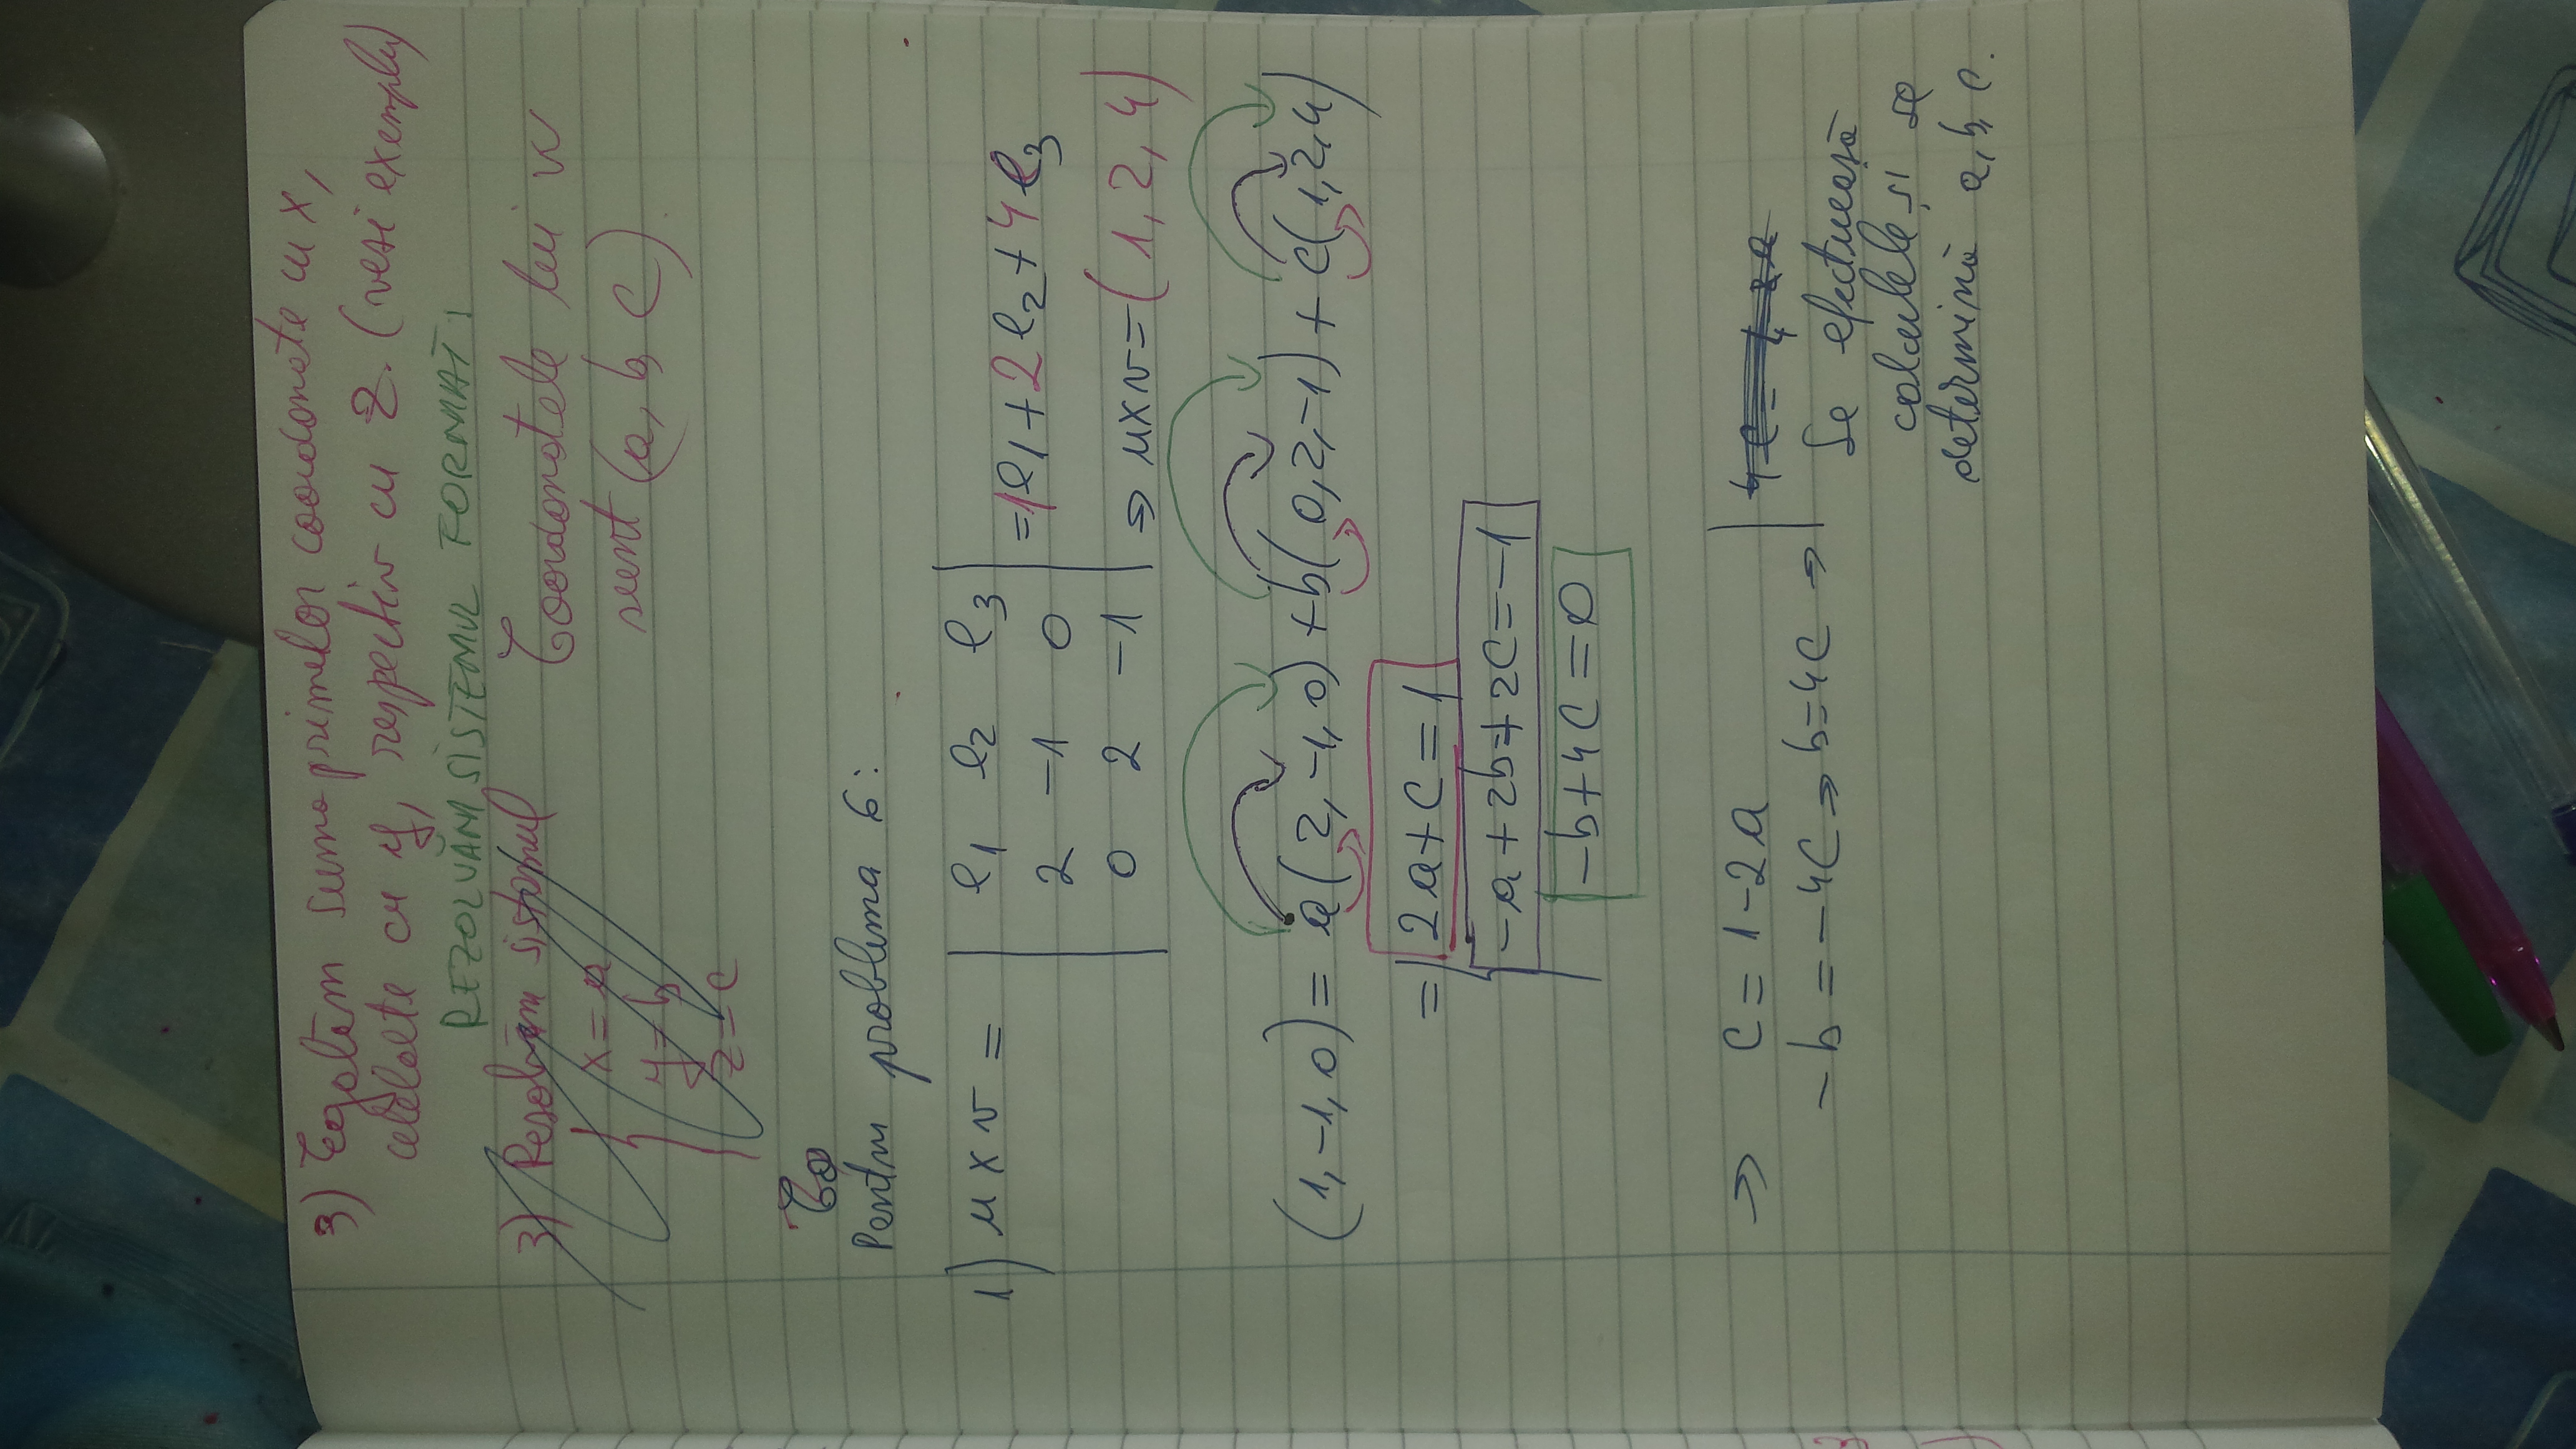 3) Egalăm suma primelor coordonate cu x,
celelalte cu y, respectiv cu z. (vezi exemplu)
REZOLVĂM SISTEMUL FORMAT!
3) Rezolvăm sistemul
x = a
y = b
z = c
Coordonatele lui w
sunt (a, b, c).
Co
Pentru problema 6:
1) u x v = | e1 e2 e3 | = 1e1 + 2e2 + 4e3
2 -1 0
0 2 -1 | => u x v = (1, 2, 4)
(1, -1, 0) = a(2, -1, 0) + b(0, 2, -1) + c(1, 2, 4)
= { 2a + c = 1
-a + 2b + 2c = -1
-b + 4c = 0
=> c = 1 - 2a
-b = -4c => b = 4c =>
Se efectuează
calculele și se
determină a, b, c.